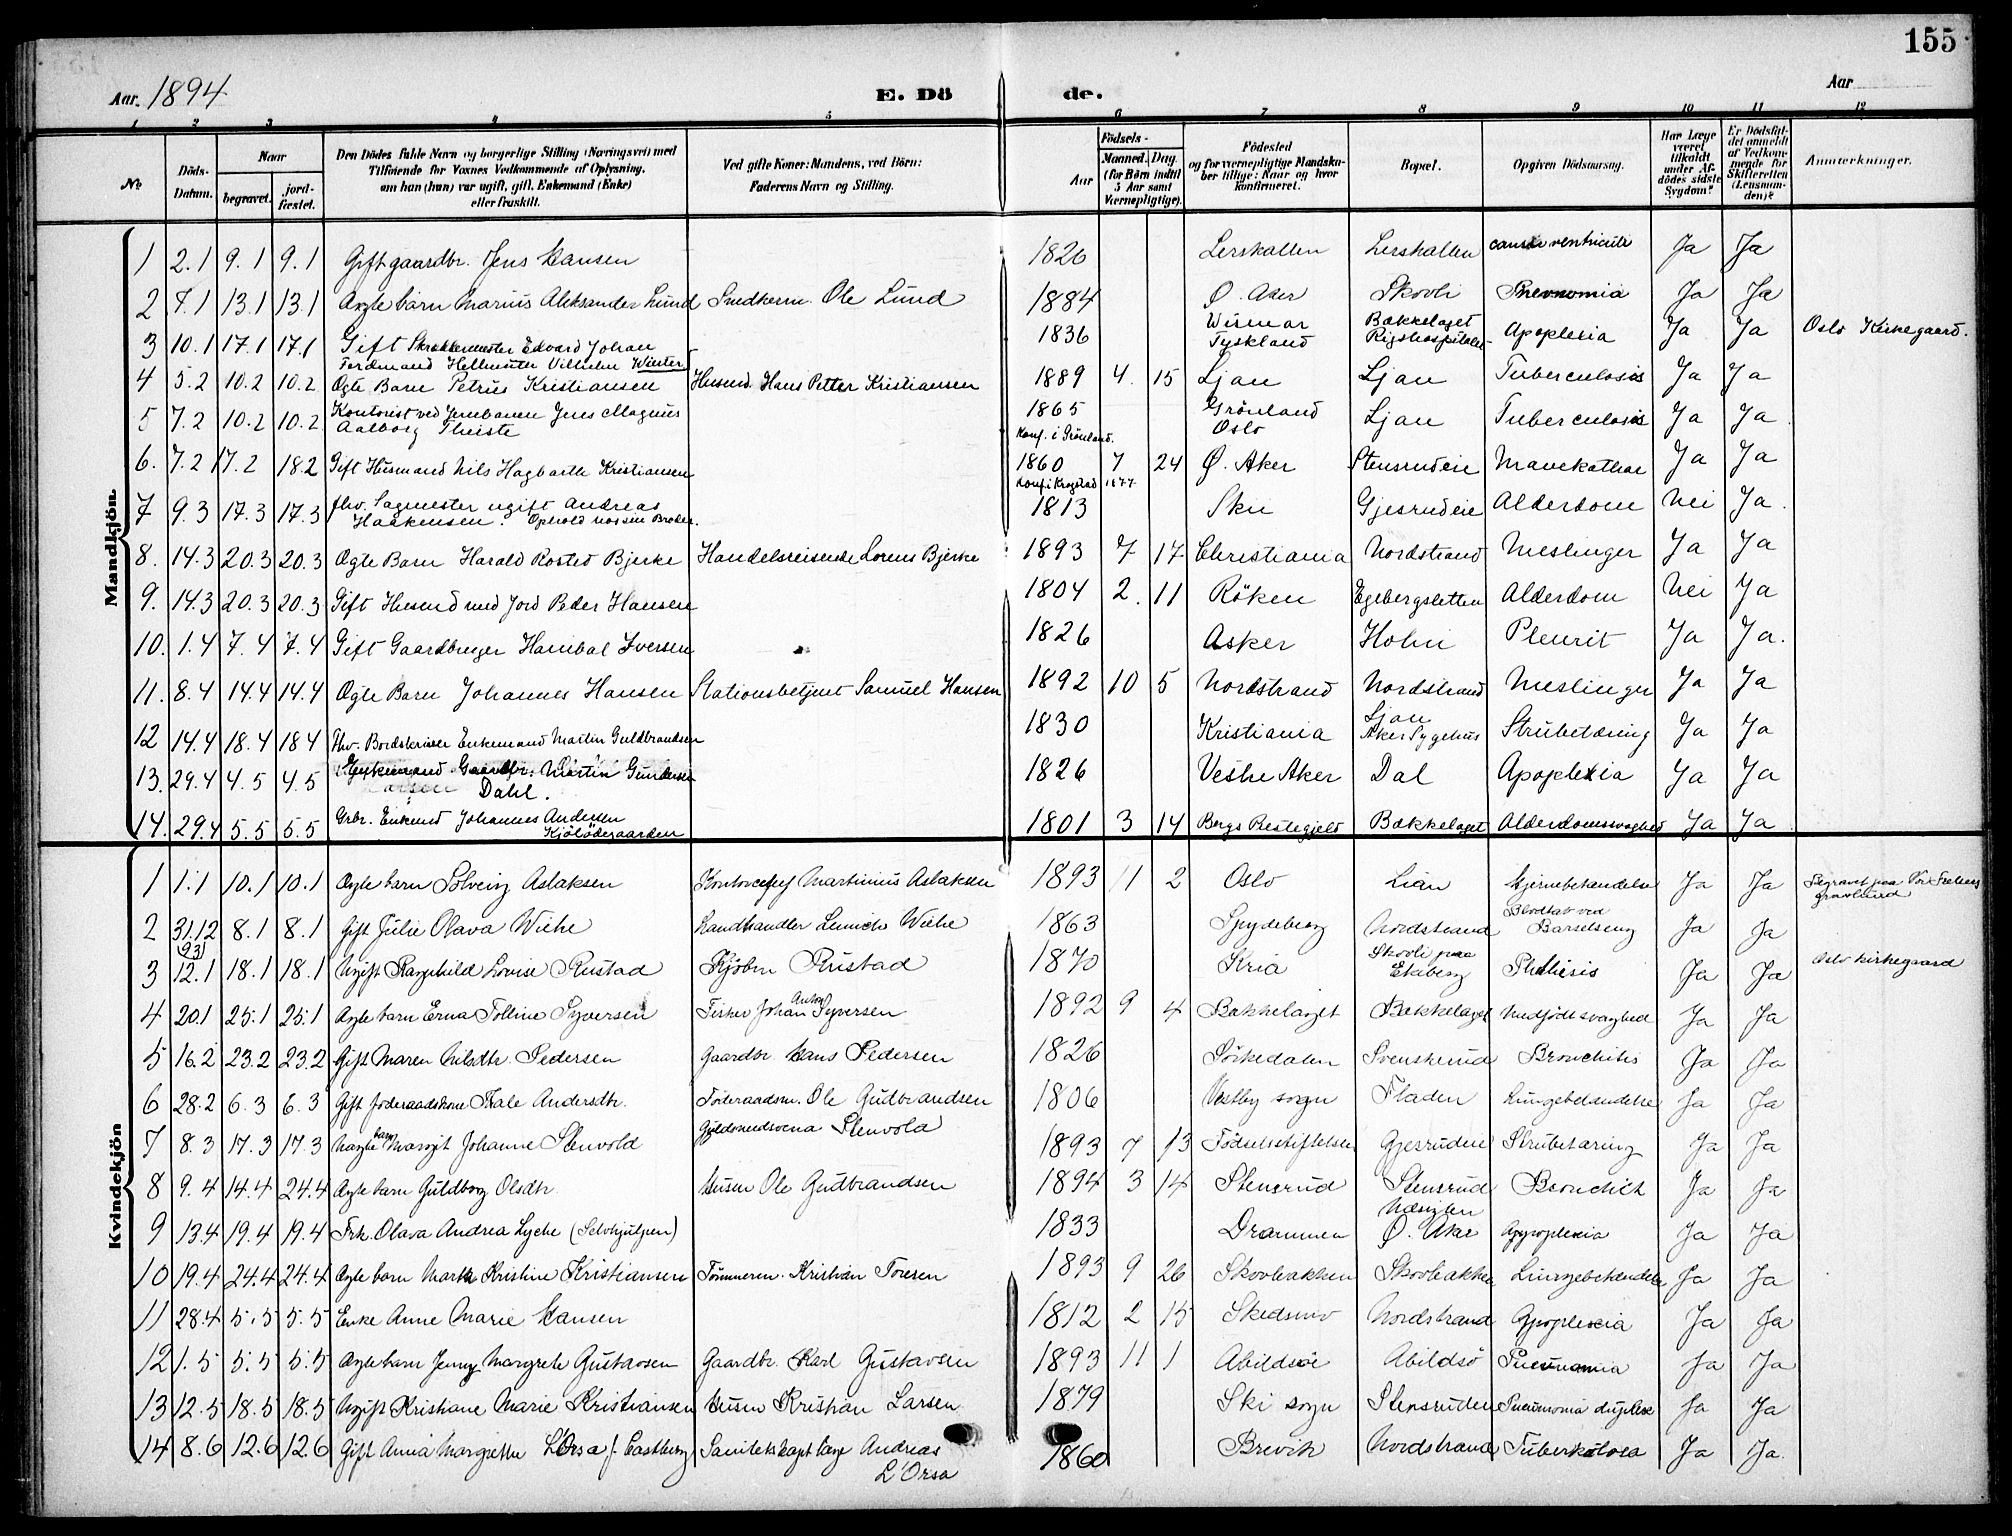 155
Aar. 1894
E. Dö de.
Aar
1 2 3 4 5 6 7 8 9 10 11 12
No
Döds-Datum.
Naar
begravet.
jord-fæstet.
Den Dödes fulde Navn og borgerlige Stilling (Næringsvei) med
Tilföiende for Voxnes Vedkommende af Oplysning,
om han (hun) var ugift, gift, Enkemand (Enke)
eller fraskilt.
Ved gifte Koner: Mandens, ved Börn:
Faderens Navn og Stilling.
Födsels-
Aar
Maaned. Dag.
(for Börn indtil
5 Aar samt
Værnepligtige).
Födested
og for værnepligtige Mandska-
ber tillige: Naar og hvor
konfirmeret.
Bopæl.
Opgiven Dödsaarsag.
Har Læge
været
tilkaldt
under Af-
dödes sidste
Sygdom?
Er Dödsfal-
det anmeldt
af Vedkom-
mende for
Skifteretten
(Lensman-
den)?
Anmærkninger.
Mandkjön
1 2.1 9.1 9.1 Gift gaardbr. Jens Hansen 1820 Lerskallen Lerskallen cancer ventriculi Ja Ja
2 7.1 13.1 13.1 Ægte barn Marius Aleksander Lund Snedkerm. Ole Lund 1884 Ø. Aker Skovli Pnevnomia Ja Ja
3 10.1 17.1 17.1 Gift Skræddermester Edvard Johan Ferdinand Hellmuter Vilhelm Winter 1836 Wismar Tyskland Bækkelaget Rigshospitalet Apoplexia Ja Ja Oslo Kirkegaard.
4 5.2 10.2 10.2 Ægte Barn Petrus Kristiansen Husmd. Hans Petter Kristiansen 1889 4. 15 Ljan Ljan Tuberculosis Ja Ja
5 7.2 10.2 10.2 Kontorist ved Jernbanen Jens Magnus Aalborg Thiste 1865 Konf. i Grönland. Grönland Oslo Ljan Tuberculosis Ja Ja.
6. 7.2 17.2 18.2 Gift Husmand Nils Hagbarth Kristiansen 1860 7 24 Konf. i Krogstad 1877 Ø. Aker Stensrudeie Mavekathar Ja Ja
7 9.3 17.3 17.3 fhv. Sagmester ugift Andreas Haakensen. Ophold hos sin Broder. 1813 Ski Gjesrudeie Alderdom Nei Ja.
8. 14.3 20.3 20.3 Ægte Barn Harald Rosted Bjerke Handelsreisende Lorens Bjerke 1893 7 17 Christiania Nordstrand Meslinger Ja Ja
9. 14.3 20.3 20.3 Gift Husmd med Jord Peder Hansen 1804 2. 11 Röken Egebergsletten Alderdom Nei Ja
10. 1.4 7.4 7.4 Gift Gaardbruger Hanibal Iversen 1826 Asker Holm Pleurit Ja Ja.
11. 8.4 14.4 14.4 Ægte Barn Johannes Hansen Stationsbetjent Samuel Hansen 1892 10 5 Nordstrand Nordstrand Meslinger Ja Ja
12 14.4 18.4 18 4 Fhv. Enkemand Martin Guldbrandsen 1830 Kristiania Ljan Aker Sygehus Strubetæring Ja Ja
13. 29.4 4.5 4.5 Enkemand Gaardbr. Martin Gundersen Dahl. 1826 Vestre Aker Dal Apoplexia Ja Ja
14. 29.4 5.5 5.5 Grbr. Enkmd Johannes Andersen 1801 3 14 Bergs Prestegjeld Bækkelaget Alderdomssvaghed Ja Ja
Kvindekjön
1 1.1 10.1 10.1 Ægte barn Solveig Aslaksen Kontorchef Martinius Aslaksen 1893 11 2 Oslo Lian Hjernebetændelse Ja Ja Begravet paa Vor Frelsers gravlund
2 31.12 (93) 8.1 8.1 Gift Julie Olava Wiehe Landhandler Wiehe 1863 Spydeberg Nordstrand Blodtab ved Barselseng Ja Ja
3 12.1 18.1 18.1 Ugift Ragnhild Lovise Rustad Kjøbm Rustad 1870 Kria Skovli paa Ekeberg Phthisis Ja Ja Oslo kirkegaard
4 20.1 25.1 25.1 Ægte barn Erna Tolline Syversen Fisker Johan Anton Syversen 1892 9 4 Bækkelaget Bækkelaget Medfödt svaghed Ja Ja
5 16.2 23.2 23.2 Gift Maren Nilsdtr. Pedersen Gaardbr Hans Pedersen 1826 Sörkedalen Svenskerud Bronchitis Ja Ja
6 28.2 6.3 6.3 Gift föderaadskone Andersdtr. Föderaadsm. Ole Gudbrandsen 1806 Vestby sogn Fladen Lungebetændelse Ja Ja
7 8.3 17.3 17.3 Uægte barn Margit Johanne Stenvold Guldsmedsvend Stenvold 1893 7 13 Födselsstiftelsen Gjesrudeie Strubetæring Ja Ja
8 9.4 14.4 24.4 Ægte barn Guldborg Olsdtr. Husm Ole Gudbrandsen 1894 3 14 Stensrud Stensrud Bronchit Ja Ja
9 13.4 19.4 19.4 Frk. Olava Andrea Lyche (Selvhjulpen) 1833 Drammen Ø. Aker Apoplexia Ja Ja
10 19.4 24.4 24.4 Ægte barn Marta Kristine Kristiansen Tömmerm. Kristian Toresen 1893 9 26 Skovbakken Skovbakken Lungebetændelse Ja Ja
11 28.4 5.5 5.5 Enke Anne Marie Hansen 1812 2 15 Skedsmo Nordstrand Apoplexia Ja Ja
12 1.5 5.5 5.5 Ægte barn Jenny Margrete Gustavsen Gaardbr. Karl Gustavsen 1893 11 1 Abildsöe Abildsö Pneumonia Ja Ja
13 12.5 18.5 18.5 Ugift Kristiane Marie Kristiansen Husm Kristian Larsen 1879 Ski sogn Stensruden Pneumonia duplex Ja Ja
14 8.6 12.6 12.6 Gift Anna Margrethe L'Orsa f. Eastberg Sanitetskapt læge Andreas L'Orsa 1860 Brevik Nordstrand Tuberkulosa Ja Ja.